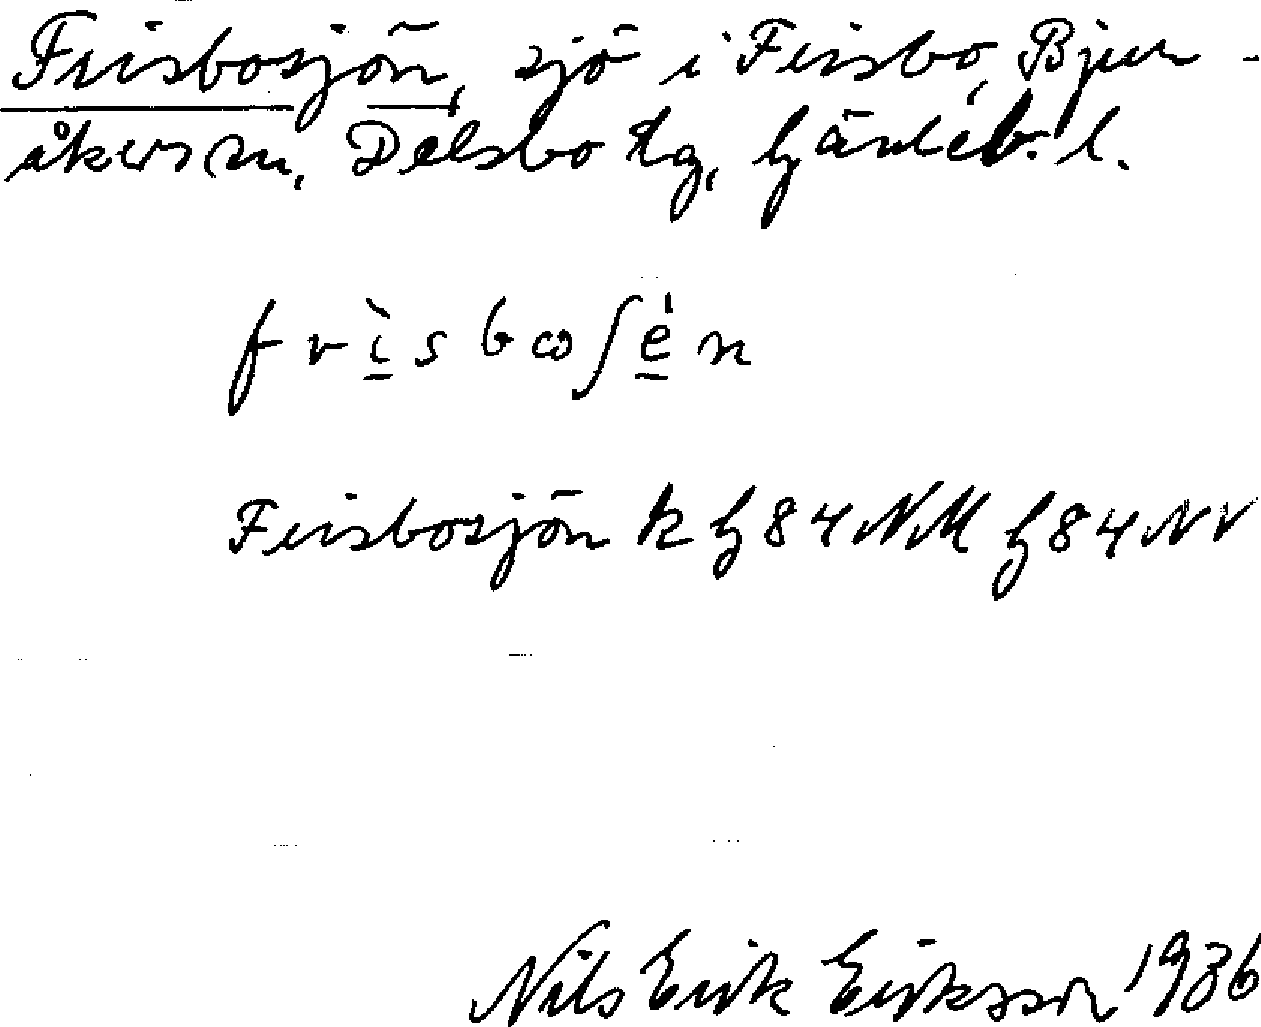 Frisbosjön, sjö i Frisbo, Bjur-
åkers sn, Delsbo tg, Gävleb. l.
frìsbωʃén
Frisbosjön k G84NM G84NV
Nils Erik Eriksson 1936